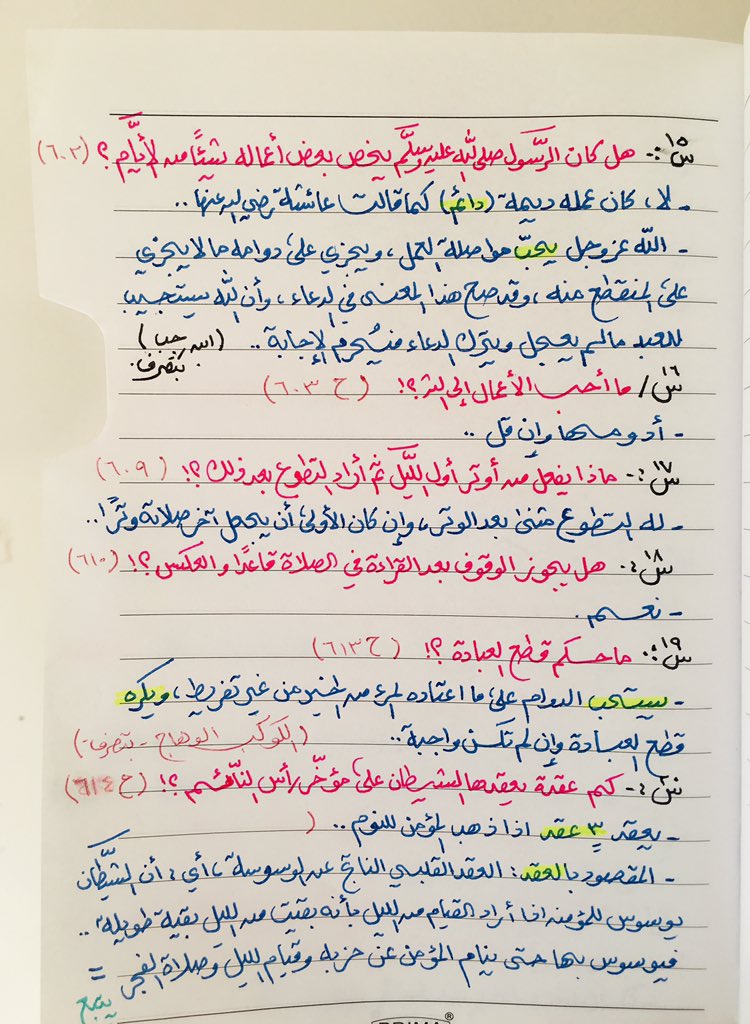 س١٥:- هل كان الرسول صلى الله عليه وسلم يخص بعض أعماله شيئًا من الأيام؟ (٦٠٢)
- لا، كان عمله ديمة (دائم) كما قالت عائشة رضي الله عنها..
- الله عز وجل يحبّ مواصلة العمل، ويجزي على دوامه ما لا يجزي
على المنقطع منه، وقد صح هذا المعنى في الدعاء، وأن الله يستجيب
للعبد ما لم يعجل ويترك الدعاء فيُحرم الإجابة.. (ابن رجب)
بتصرف.
س١٦/ ما أحب الأعمال إلى الله؟! (ح ٦٠٣)
- أدومها وإن قل..
س١٧:- ماذا يفعل من أوتر أول الليل ثم أراد التطوع بعد ذلك؟! (٦٠٩)
- له التطوع مثنى بعد الوتر، وإن كان الأولى أن يجعل آخر صلاته وترًا..
س١٨:- هل يجوز الوقوف بعد القراءة في الصلاة قاعدًا والعكس؟! (٦١٠)
- نعم.
س١٩:- ما حكم قطع العبادة؟! (ح ٦١٣)
- يستحب الدوام على ما اعتاده المرء من الخير من غير تفريط، ويكره
قطع العبادة وإن لم تكن واجبة.. (الكوكب الوهاج - بتصرف-)
س٢٠:- كم عقدة يعقدها الشيطان على مؤخّر رأس النائم؟! (ح ٦١٤)
- يعقد ٣ عقد اذا ذهب المؤمن للنوم.. )
- المقصود بالعقد: العقد القلبي الناتج عن الوسوسة، أي: أن الشيطان
يوسوس للمؤمن اذا أراد القيام من الليل بأنه بقيت من الليل بقية طويلة..
فيوسوس بها حتى ينام المؤمن عن حزبه وقيام الليل وصلاة الفجر =
يتبع